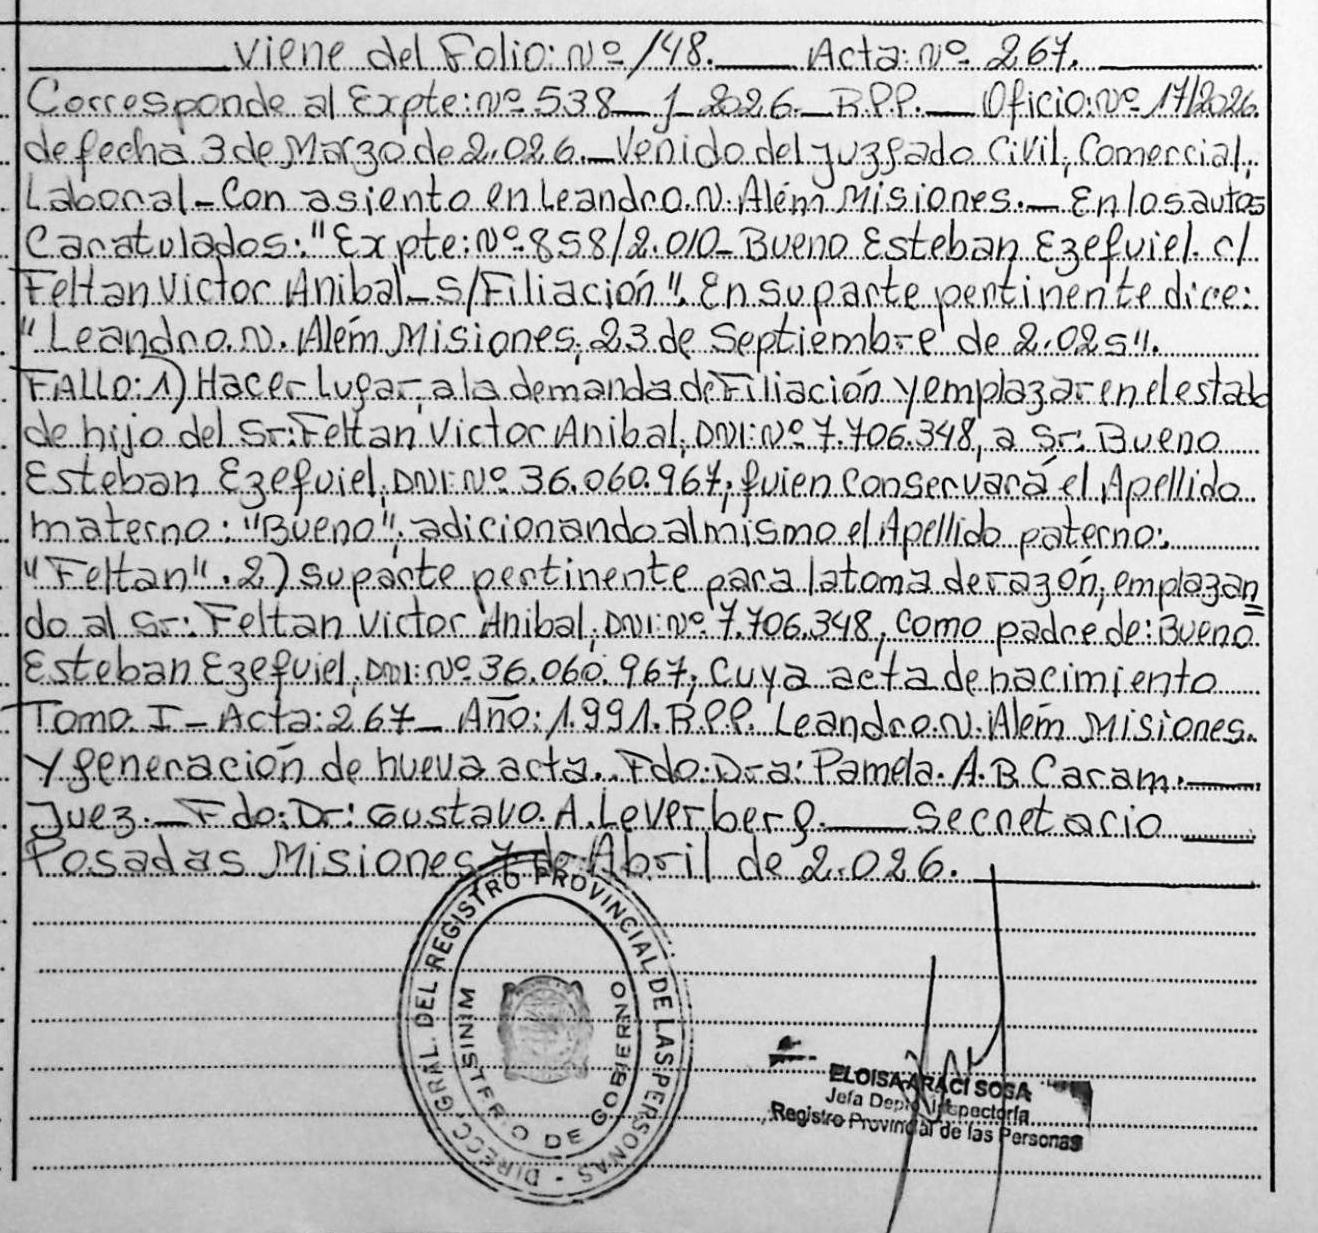 Viene del Folio: Nº 148. Acta: Nº 267.
Corresponde al Expte: Nº 538 - J - 2026. - R.P.P. - Oficio: Nº 17/2026.
de fecha 3 de Marzo de 2.026. - Venido del Juzgado Civil, Comercial,
Laboral - Con asiento en Leandro. N. Além Misiones. - En los autos
Caratulados: "Expte: Nº 858/2.010 - Bueno Esteban Ezequiel. c/
Feltan Victor Anibal - S/Filiación". En su parte pertinente dice:
"Leandro. N. Além Misiones, 23 de Septiembre de 2.025".
FALLO: 1) Hacer Lugar, a la demanda de Filiación y emplazar en el estado
de hijo del Sr: Feltan Victor Anibal, DNI: Nº 7.706.348, a Sr. Bueno
Esteban Ezequiel, DNI: Nº 36.060.967, quien conservará el Apellido
materno: "Bueno", adicionando al mismo el Apellido paterno:
"Feltan". 2) su parte pertinente para la toma de razón, emplazan
do al Sr: Feltan Victor Anibal, DNI: Nº 7.706.348, como padre de: Bueno
Esteban Ezequiel, DNI: Nº 36.060.967, Cuya acta de nacimiento
Tomo. I - Acta: 267 - Año: 1.991. R.P.P. Leandro. N. Além Misiones.
y generación de nueva acta. Fdo: Dra: Pamela. A. B. Caram. -
Juez. - Fdo: Dr: Gustavo. A. Leverberg. - Secretario
Posadas Misiones 7 de Abril de 2.026.
DIRECC. GRAL. DEL REGISTRO PROVINCIAL DE LAS PERSONAS
MINISTERIO DE GOBIERNO
ELOISA ARACI SOSA
Jefa Depto Inspectoría
Registro Provincial de las Personas